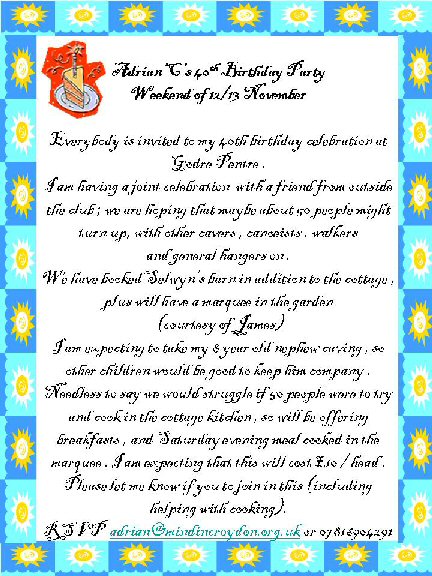 Adrian C's 40th Birthday Party
Weekend of 12/13 November
Everybody is invited to my 40th birthday celebration at
Godre Pentre .
I am having a joint celebration with a friend from outside
the club ; we are hoping that maybe about 50 people might
turn up, with other cavers , canoeists . walkers
and general hangers on .
We have booked Selwyn's barn in addition to the cottage ,
plus will have a marquee in the garden
(courtesy of James)
I am expecting to take my 8 year old nephew caving , so
other children would be good to keep him company .
Needless to say we would struggle if 50 people were to try
and cook in the cottage kitchen , so will be offering
breakfasts , and Saturday evening meal cooked in the
marquee . I am expecting that this will cost £10 / head .
Please let me know if you to join in this (including
helping with cooking).
RSVP adrian@mindincroydon.org.uk or 07816904291